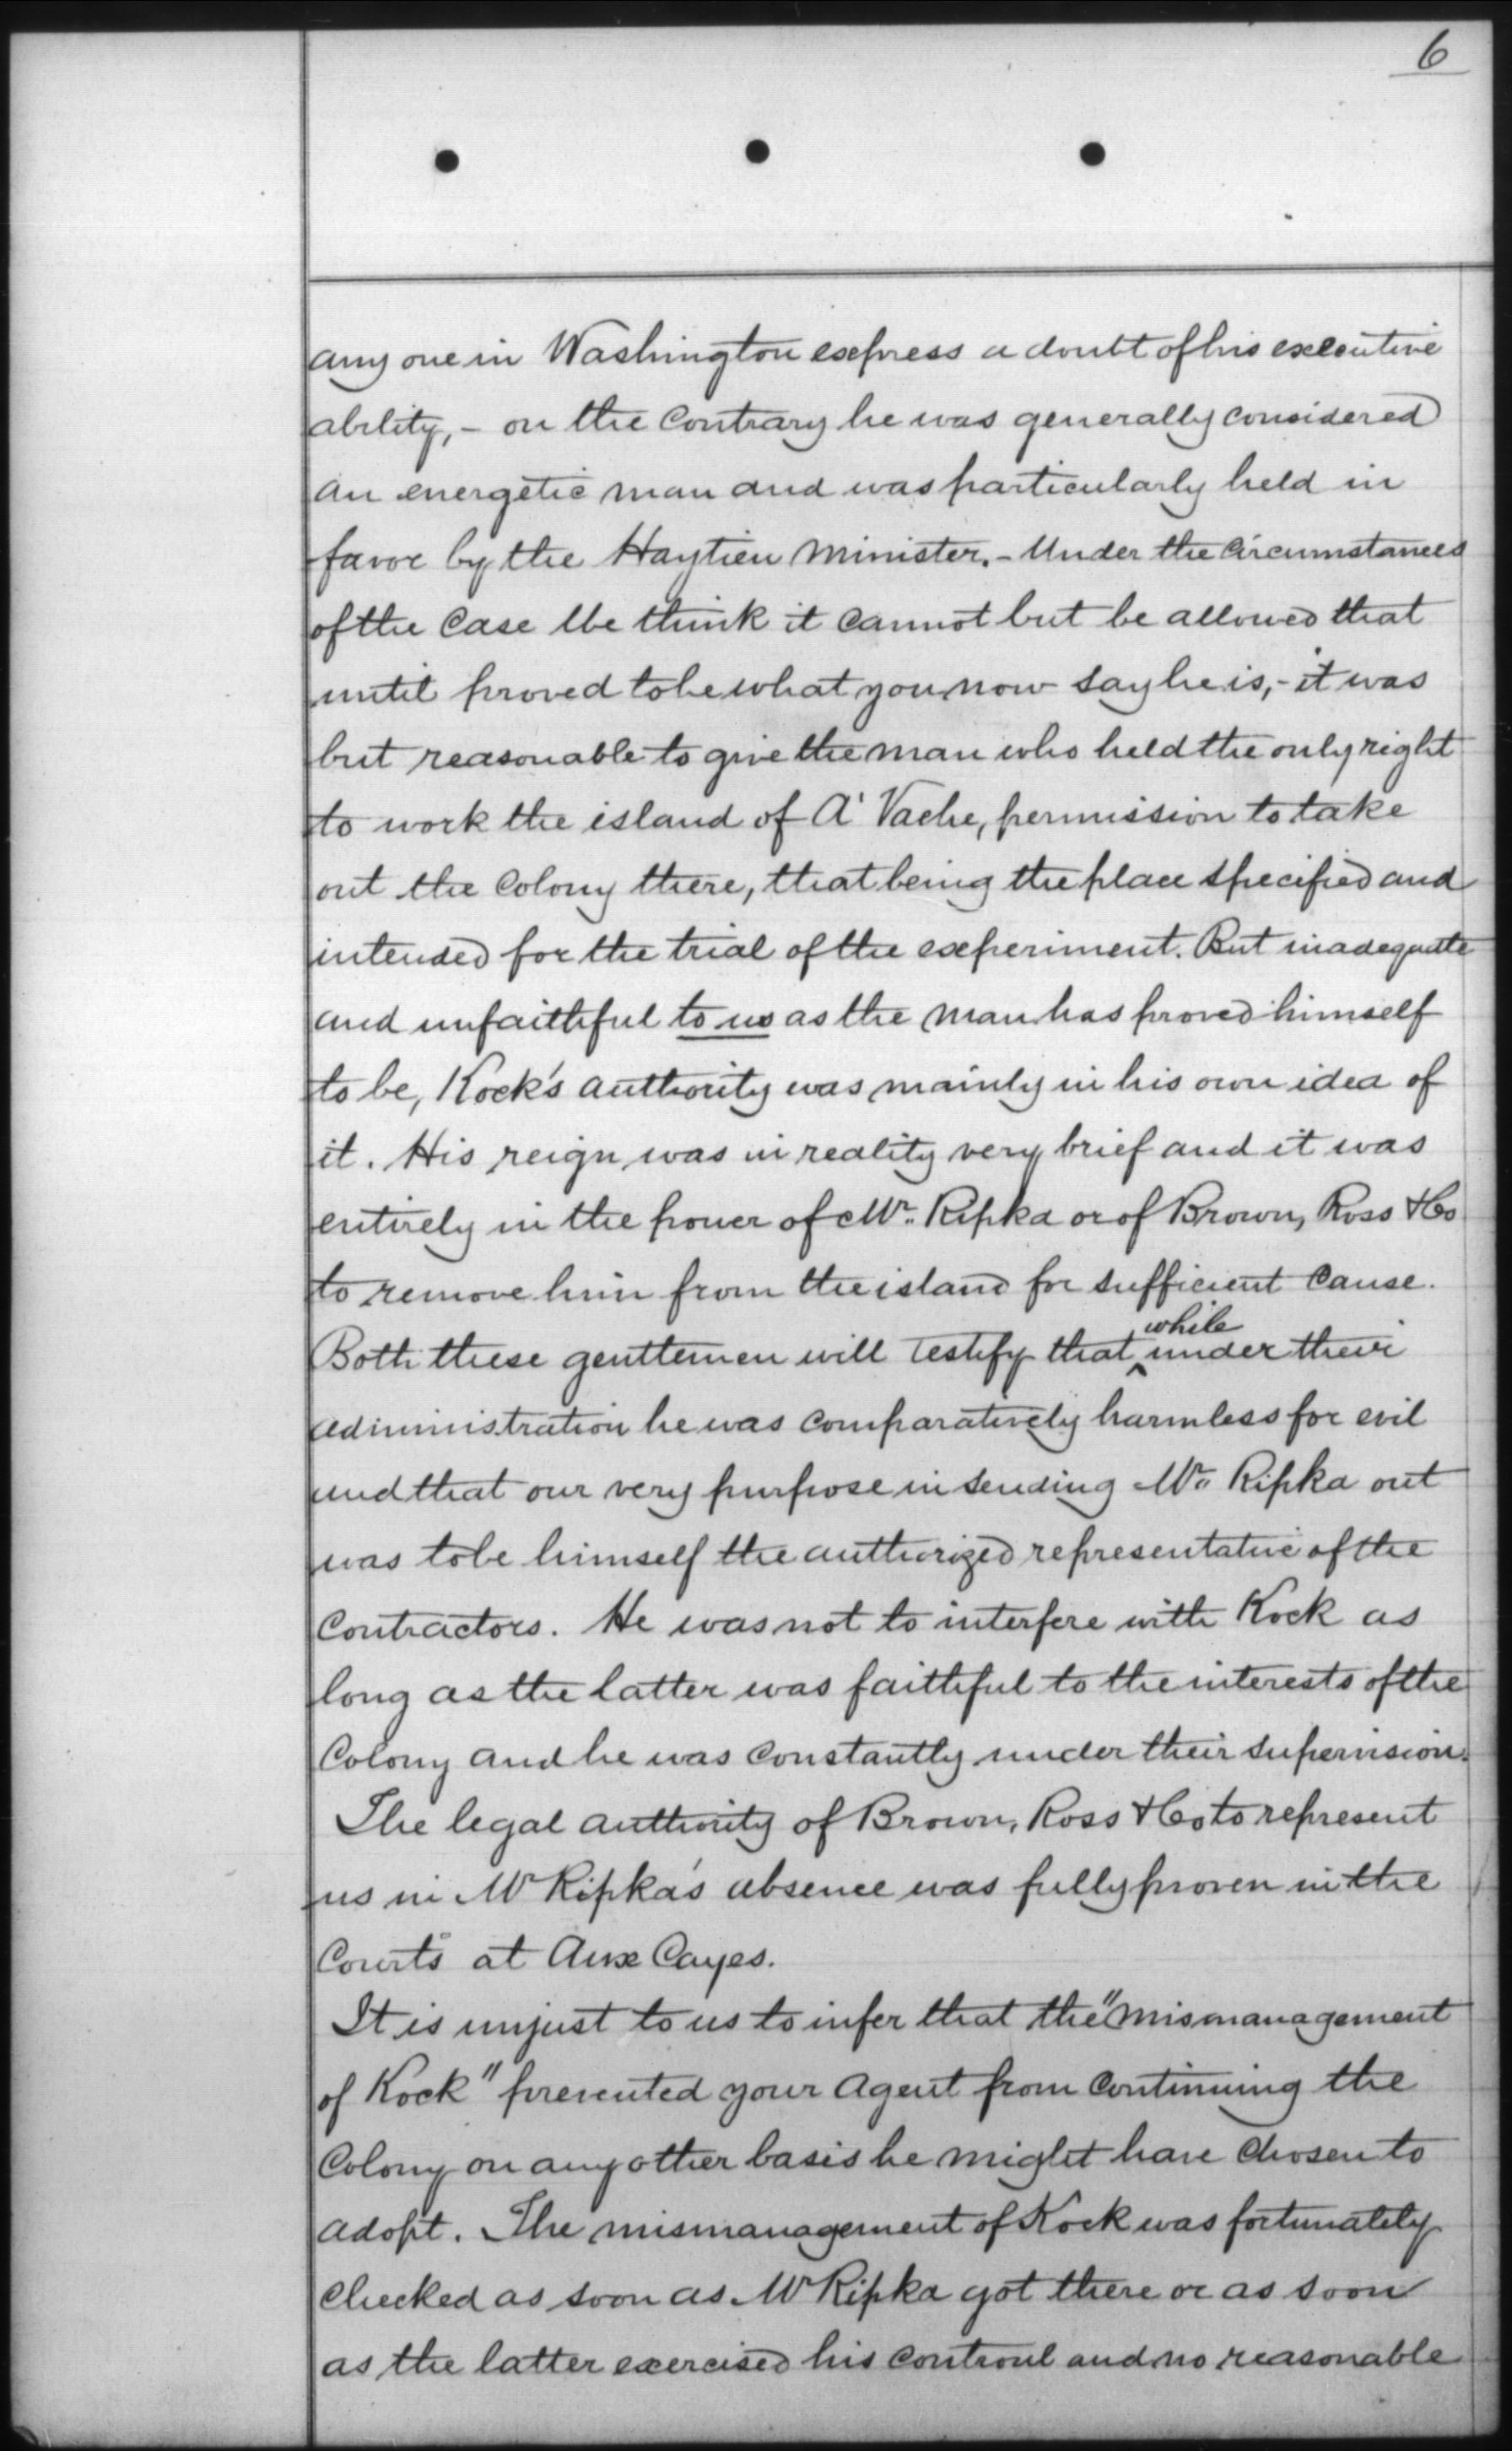 6
any one in Washington express a doubt of his executive
ability, - on the Contrary he was generally considered
an energetic man and was particularly held in
favor by the Haytien Minister. - Under the Circumstances
of the Case We think it cannot but be allowed that
until proved to be what you now say he is, - it was
but reasonable to give the man who held the only right
to work the island of A' Vache, permission to take
out the Colony there, that being the place specified and
intended for the trial of the experiment. But inadequate
and unfaithful to us as the man has proved himself
to be, Kock's authority was mainly in his own idea of
it. His reign was in reality very brief and it was
entirely in the power of Mr. Ripka or of Brown, Ross & Co
to remove him from the island for sufficient Cause.
Both these gentlemen will testify that while under their
administration he was comparatively harmless for evil
and that our very purpose in sending Mr. Ripka out
was to be himself the authorized representative of the
Contractors. He was not to interfere with Kock as
long as the latter was faithful to the interests of the
Colony and he was Constantly under their supervision.
The legal authority of Brown, Ross & Co to represent
us in Mr Ripka's absence was fully proven in the
Courts at Aux Cayes.
It is unjust to us to infer that the "mismanagement
of Kock" prevented your Agent from Continuing the
Colony on any other basis he might have Chosen to
adopt. The mismanagement of Kock was fortunately
Checked as soon as Mr Ripka got there or as soon
as the latter exercised his Controul and no reasonable